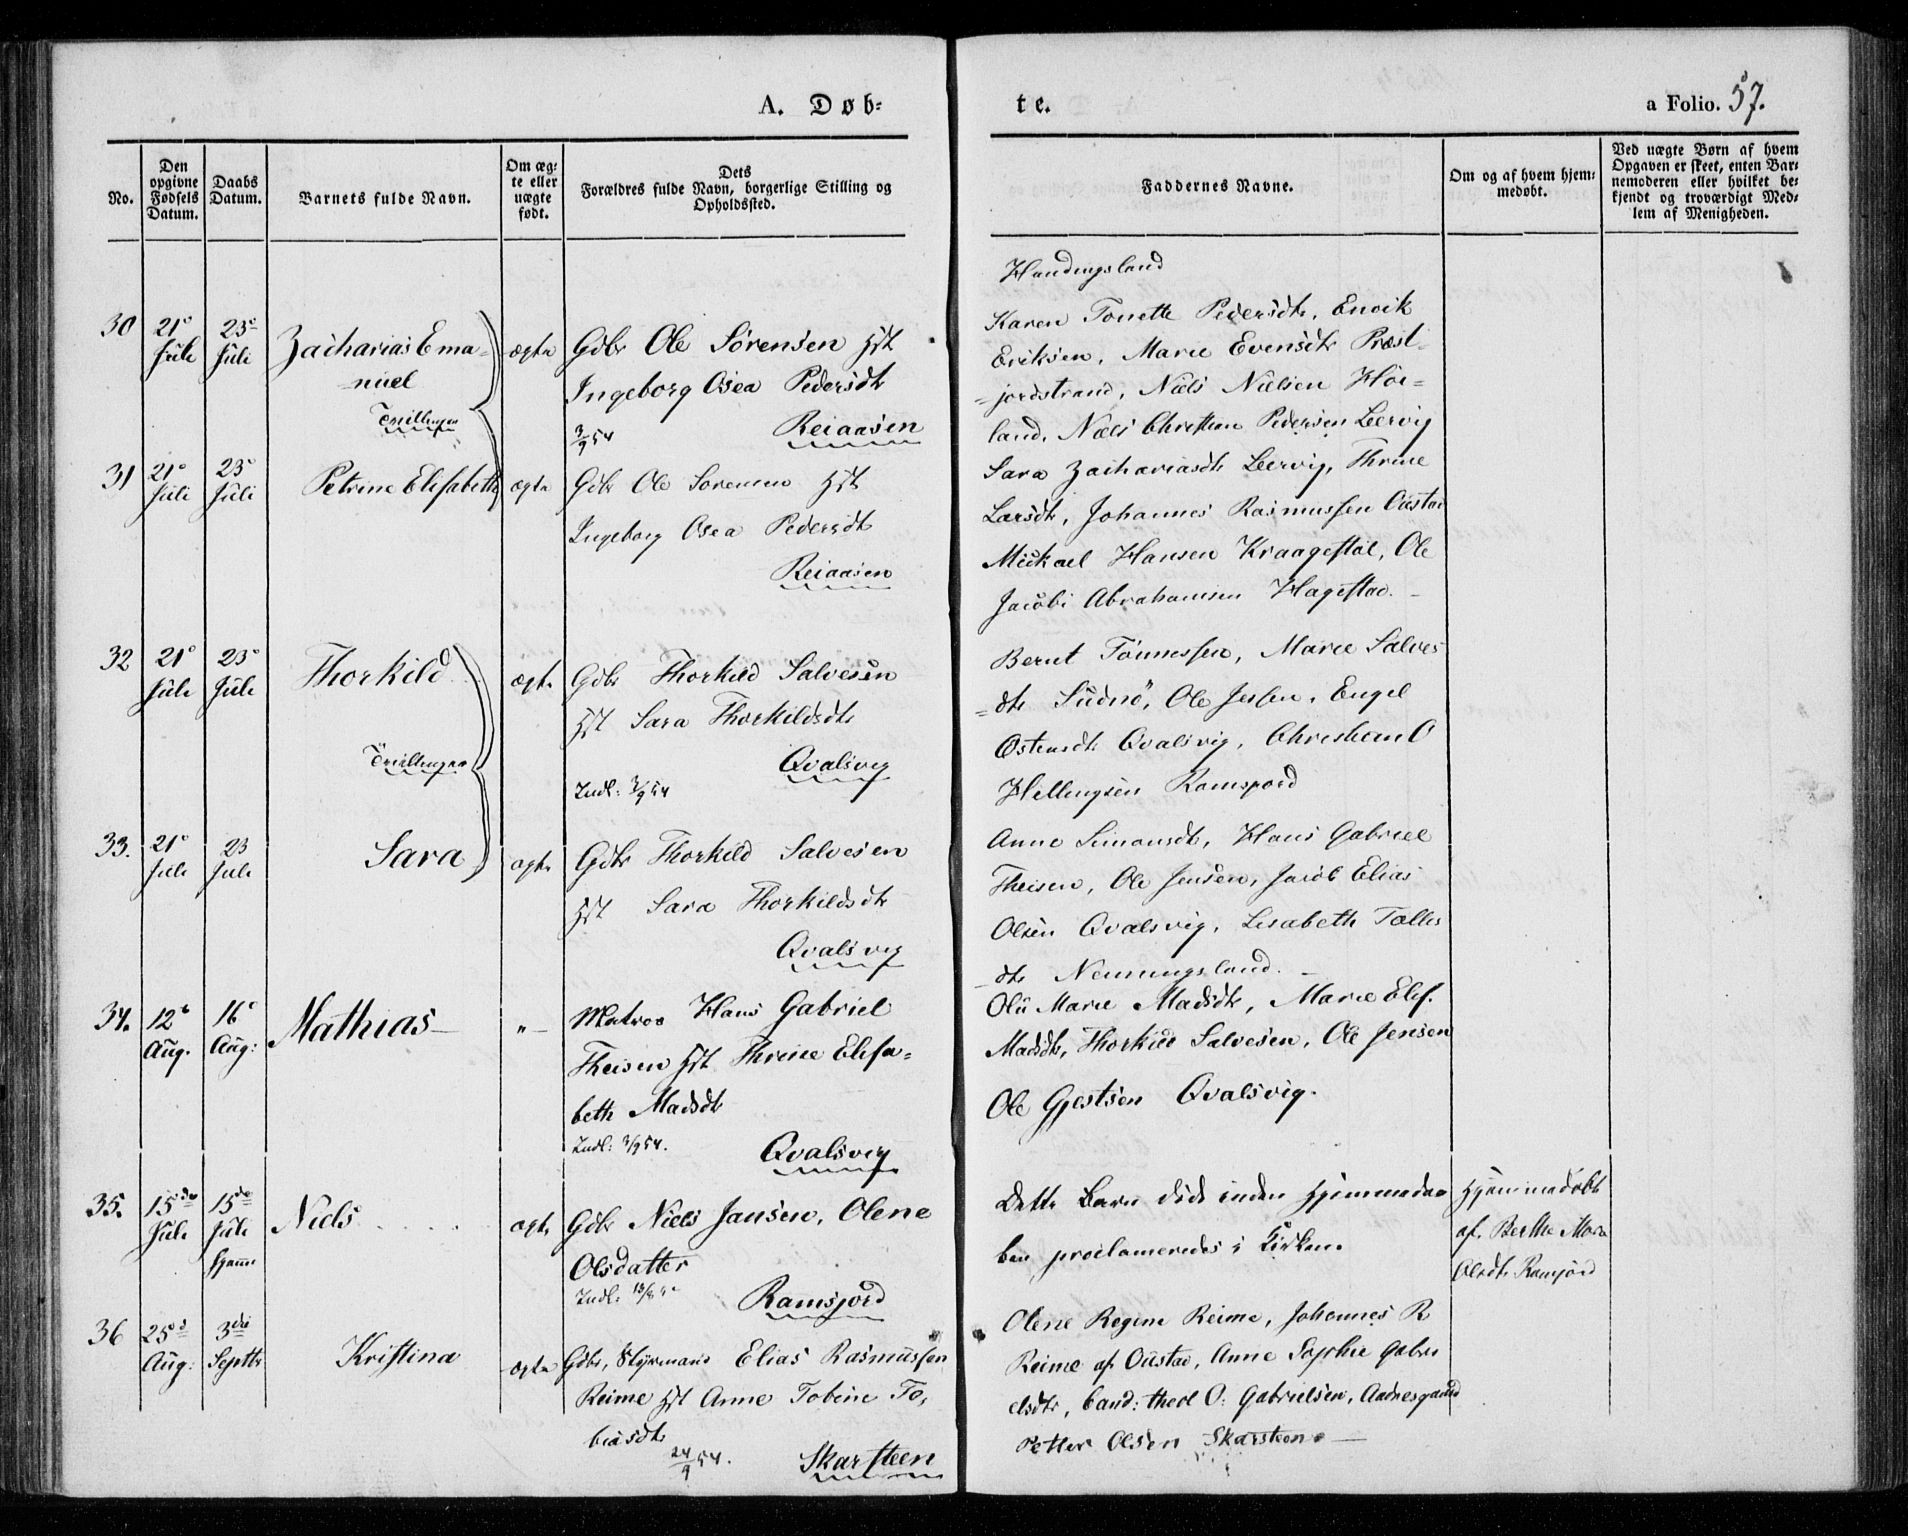 A. Døb-
te.
a Folio. 57.
No.
Den opgivne Fødsels Datum.
Daabs Datum.
Barnets fulde Navn.
Om ægte eller uægte født.
Dets Forældres fulde Navn, borgerlige Stilling og Opholdssted.
Faddernes Navne.
Om og af hvem hjemmedøbt.
Ved uægte Børn af hvem Opgaven er skeet, enten Barnemoderen eller hvilket bekjendt og troværdigt Medlem af Menigheden.
30 21° Juli 23° Juli
Zacharias Ema-
nuel
Tvillinger
ægte
Gdbr Ole Sørensen Hst
Ingeborg Osea Pedersdtr
3/9 54 Reiaasen
Karen Tonette Pedersdtr, Enoik
Eriksen, Marie Evensdtr Præst-
jordstrand, Niels Nielsen Hør-
land, Niels Christian Pedersen Leervig
31 21° Juli 23° Juli
Petrine Elisabeth
ægte
Gdbr Ole Sørensen Hst
Ingeborg Osea Pedersdtr
Reiaasen
Sara Zachariasdtr Leervig, Thrine
Larsdtr, Johannes Rasmussen Oustad
Mickael Hansen Kraagestøl, Ole
Jacobi Abrahamsen Hagestad.
32 21° Juli 23° Juli
Thorkild
Tvillinger
ægte
Gdbr Thorkild Salvesen
Hst Sara Thorkildsdtr
Qvalsvig
Indl: 3/9 54
Bernt Tønnessen, Marie Salves
dtr Sudnø, Ole Jensen, Engel
Ostensdtr Qvalsvig, Christian O
Hellingsen Ramsjord
33. 21° Juli 23 Juli
Sara
ægte
Gdbr Thorkild Salvesen
Hst Sara Thorkildsdtr
Qvalsvig
Anne Simonsdtr, Hans Gabriel
Theisen, Ole Jensen, Jacob Elias
Olsen Qvalsvig, Lisabeth Tølles
dtr Nenningsland.
34. 12te Aug. 16de Aug:
Mathias
"
Matros Hans Gabriel
Theisen Hst Thrine Elisa-
beth Madsdtr
Indl: 3/9 54. Qvalsvig
Marie Madsdtr, Marie Elis.
Madsdtr, Thorkild Salvesen, Ole Jensen
Ole Gjestsen Qvalsvig.
35. 15de Juli 15de Juli hjemme
Niels
ægte
Gdbr Niels Jansen, Olene
Olsdatter
Indl: Ramsjord
Dette Barn døde inden Hjemmedaa
ben proclameredes i Kirken.
Hjemmedøbt
af Berthe Mar
Olsdtr Ramsjord
36 25de Aug: 3die Septbr
Kristina
ægte
Gdbr, Styrmand Elias Rasmussen
Reime Hst Anne Tobine To-
biasdtr
24/9 54. Skarsteen
Olene Regine Reime, Johannes R
Reime af Oustad, Anne Sophie Gabri
elsdtr, Cand: theol O: Gabrielsen, Aadnesgaard
Petter Olsen Skarsteen.